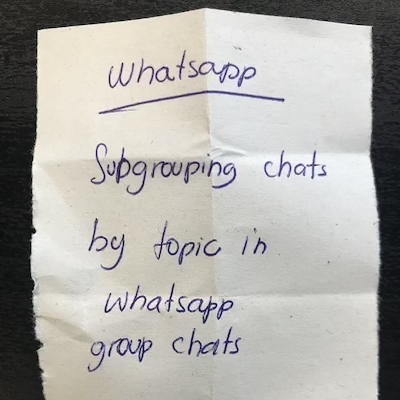 Whatsapp
Subgrouping chats
by topic in
whatsapp
group chats